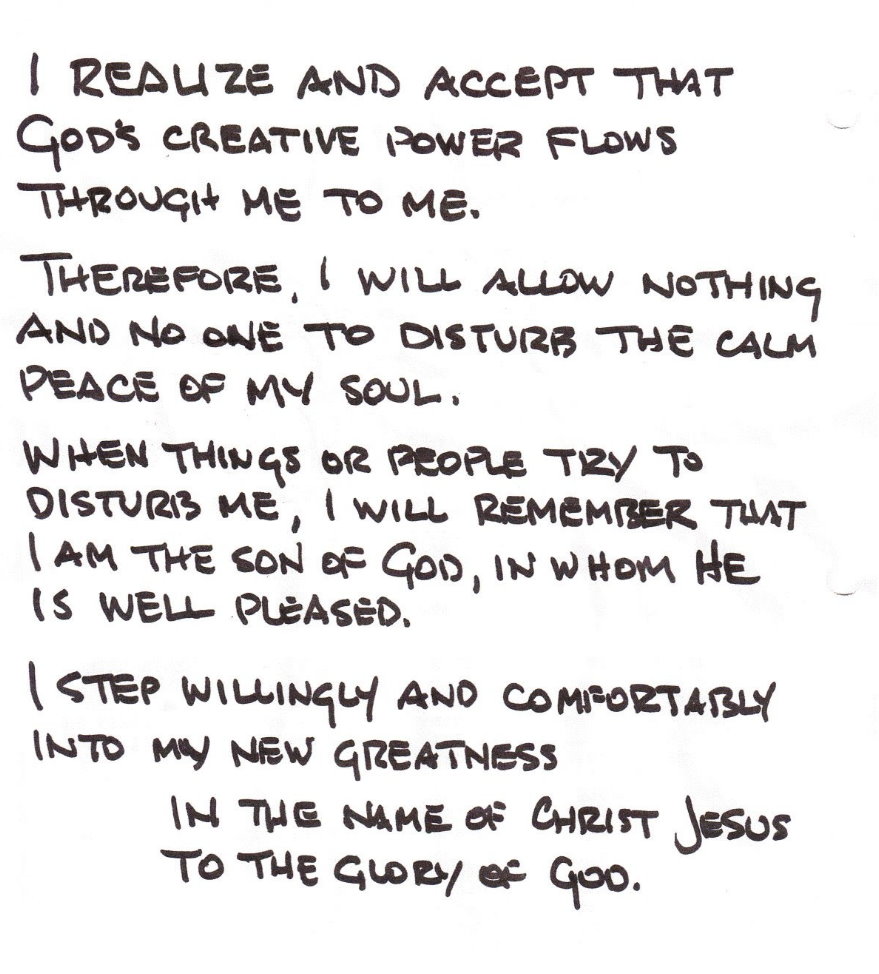 I REALIZE AND ACCEPT THAT
GOD'S CREATIVE POWER FLOWS
THROUGH ME TO ME.
THEREFORE, I WILL ALLOW NOTHING
AND NO ONE TO DISTURB THE CALM
PEACE OF MY SOUL.
WHEN THINGS OR PEOPLE TRY TO
DISTURB ME, I WILL REMEMBER THAT
I AM THE SON OF GOD, IN WHOM HE
IS WELL PLEASED.
I STEP WILLINGLY AND COMFORTABLY
INTO MY NEW GREATNESS
IN THE NAME OF CHRIST JESUS
TO THE GLORY OF GOD.